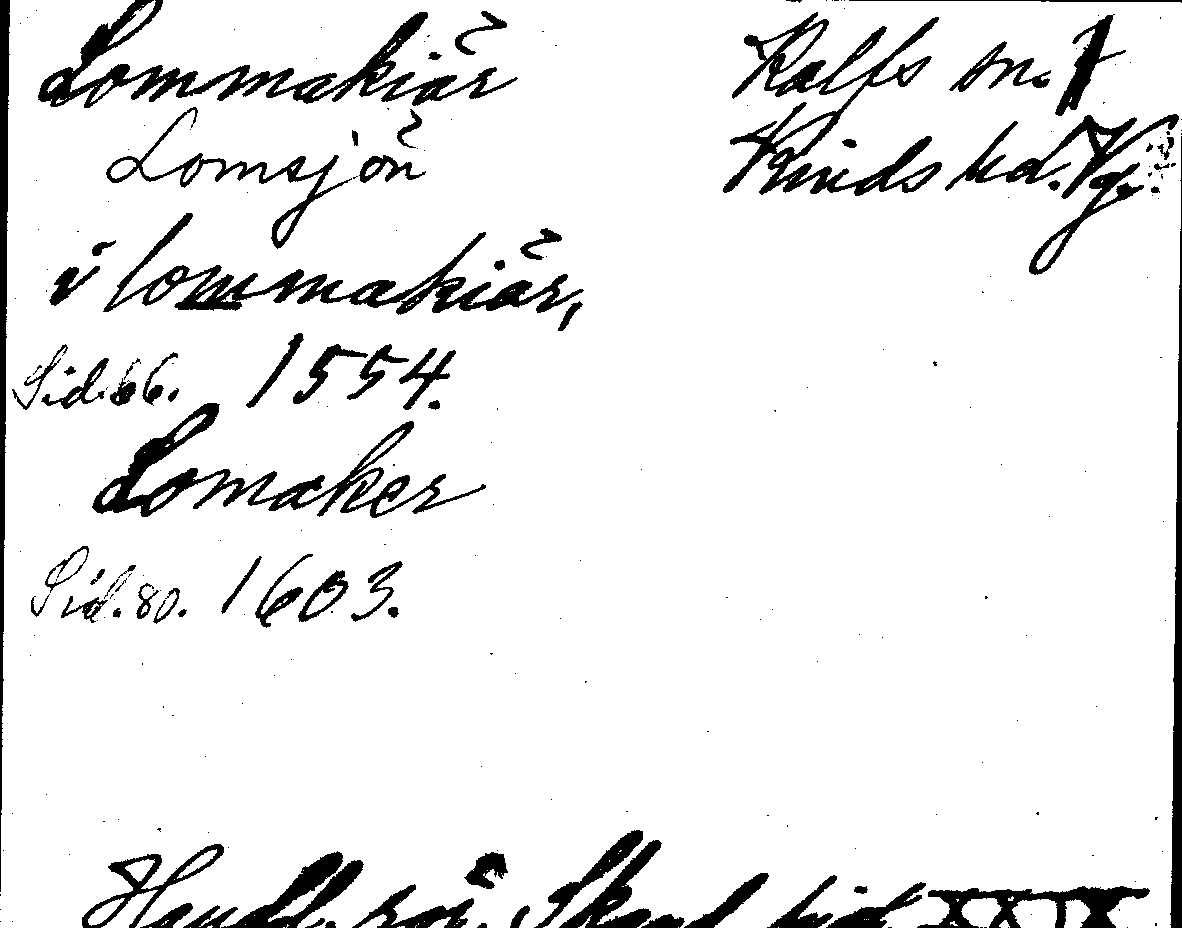 Lommakiär Kalfs sn.
Lomsjön Kinds hd. Vg.
i lommakiär,
Sid. 66. 1554.
Lomaker
Sid. 80. 1603.
Handl. rör. Skand. hist. XXIX